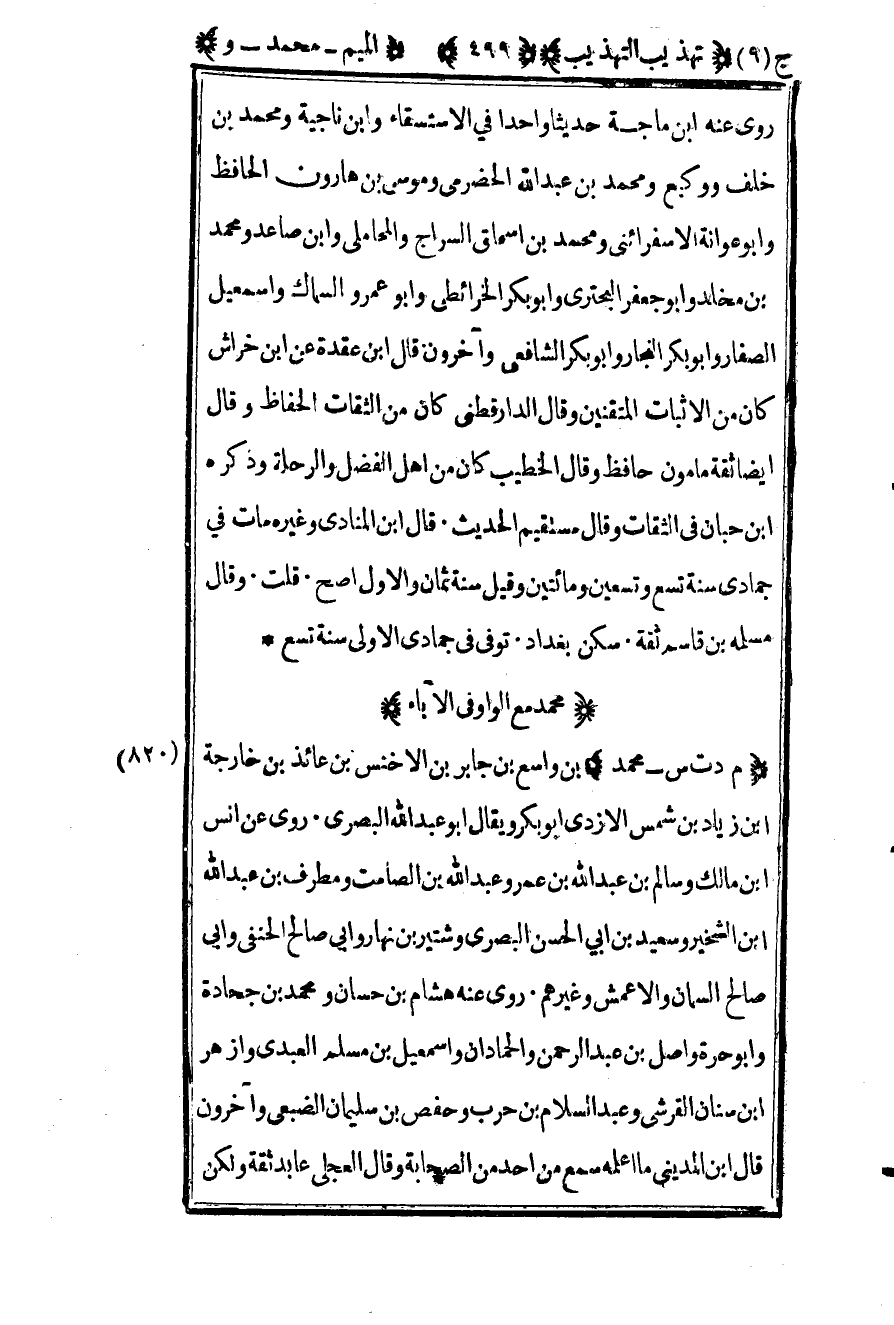 ج (٩) ﴿ تهذيب التهذيب ﴾ ﴿ ٤٩٩ ﴾ ﴿ الميم ـ محمد ـ و ﴾
روى عنه ابن ماجة حديثا واحدا في الاستسقاء وابن ناجية ومحمد بن
خلف ووكيع ومحمد بن عبدالله الحضرمى وموسى بن هارون الحافظ
وابو عوانة الاسفرائنى ومحمد بن اسحاق السراج والمحاملى وابن صاعد ومحمد
بن مخلد وابو جعفر البحترى وابو بكر الخرائطى وابو عمرو السماك واسمعيل
الصفار وابو بكر النجار وابو بكر الشافعى وآخرون قال ابن عقدة عن ابن خراش
كان من الاثبات المتقنين وقال الدارقطنى كان من الثقات الحفاظ وقال
ايضا ثقة مامون حافظ وقال الخطيب كان من اهل الفضل والرحلة وذكره
ابن حبان فى الثقات وقال مستقيم الحديث ٠ قال ابن المنادى وغيره مات في
جمادى سنة تسع وتسعين ومائتين وقيل سنة ثمان والاول اصح ٠ قلت ٠ وقال
مسلمه بن قاسم ثقة ٠ سكن بغداد ٠ توفى فى جمادى الاولى سنة تسع *
﴿ محمد مع الواو فى الآباء ﴾
﴿ م د ت س ـ محمد ﴾ بن واسع بن جابر بن الاخنس بن عائذ بن خارجة (٨٢٠)
ابن زياد بن شمس الازدى ابو بكر ويقال ابو عبدالله البصرى ٠ روى عن انس
ابن مالك وسالم بن عبدالله بن عمر وعبدالله بن الصامت ومطرف بن عبدالله
ابن الشخير وسعيد بن ابي الحسن البصرى وشتير بن نهار وابي صالح الحنفى وابى
صالح السمان والاعمش وغيرهم ٠ روى عنه هشام بن حسان ومحمد بن جحادة
وابو حرة واصل بن عبدالرحمن والحمادان واسمعيل بن مسلم العبدى وازهر
ابن سنان القرشى وعبدالسلام بن حرب وحفص بن سليمان الضبعى وآخرون
قال ابن المدينى ما اعلمه سمع من احد من الصحابة وقال العجلى عابد ثقة ولكن